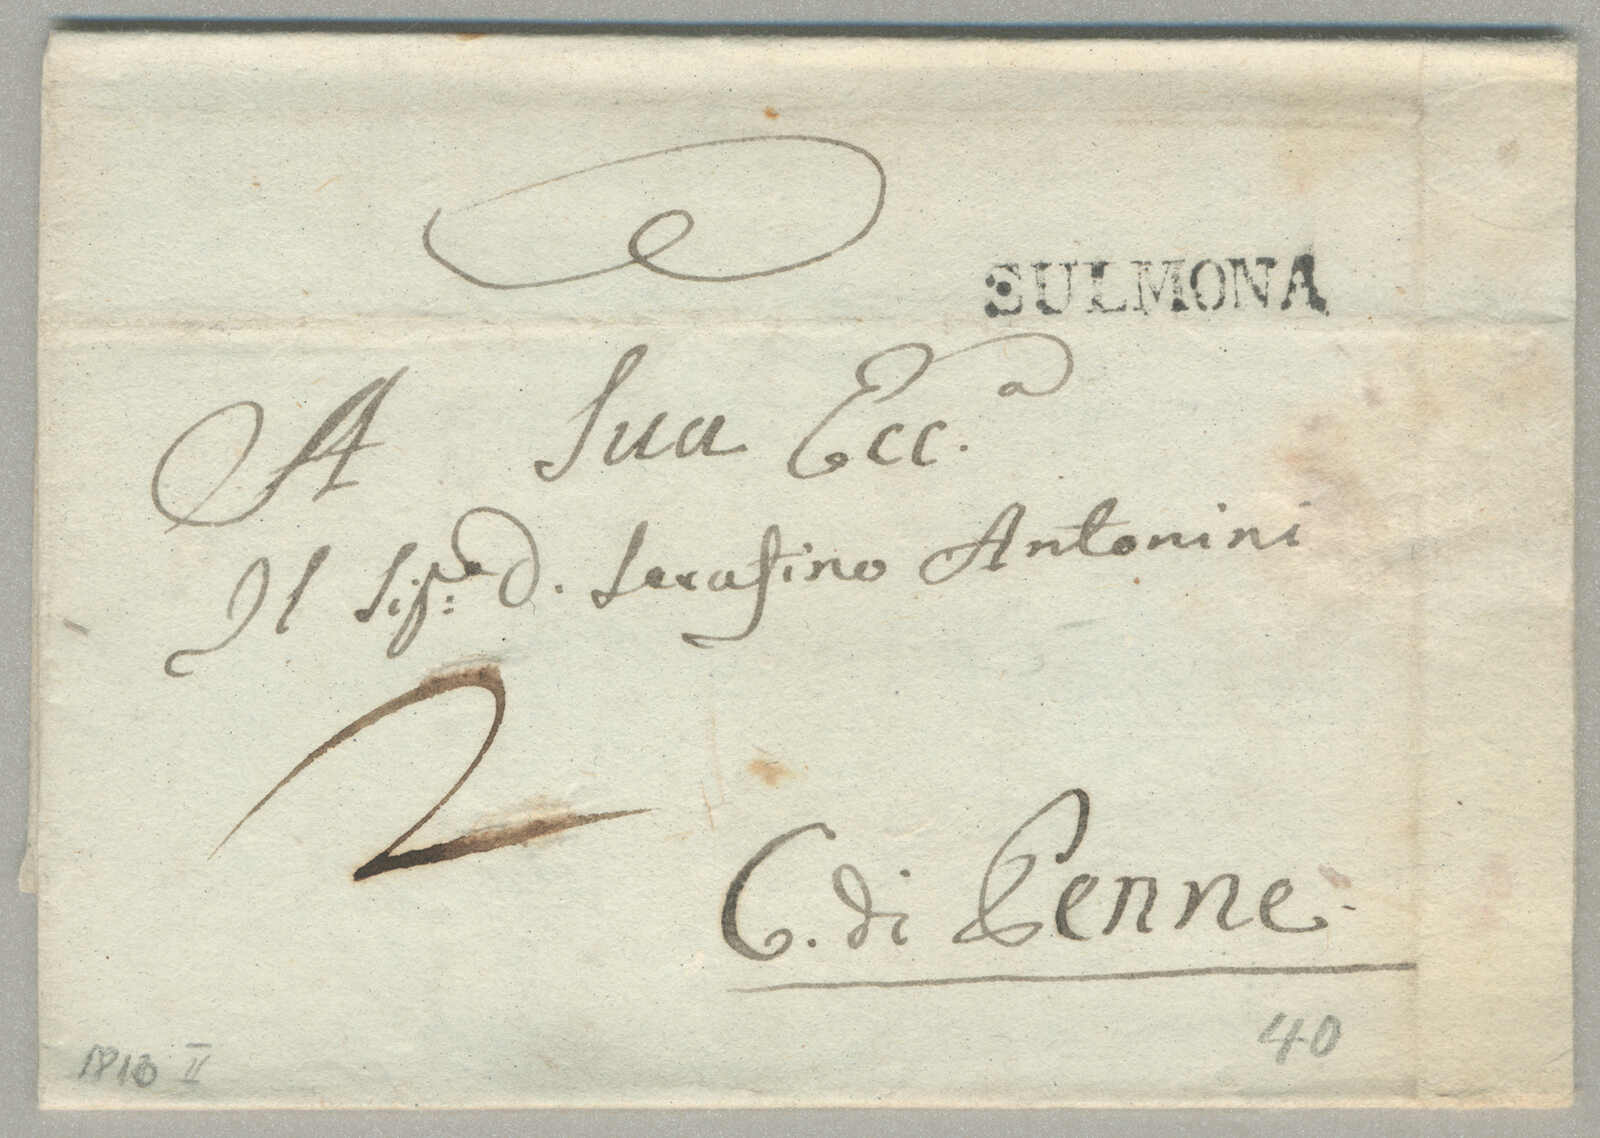 SULMONA
A Sua Ecc.a
Il Sig.re D. Serafino Antonini
2
C. di Penne.
40
II